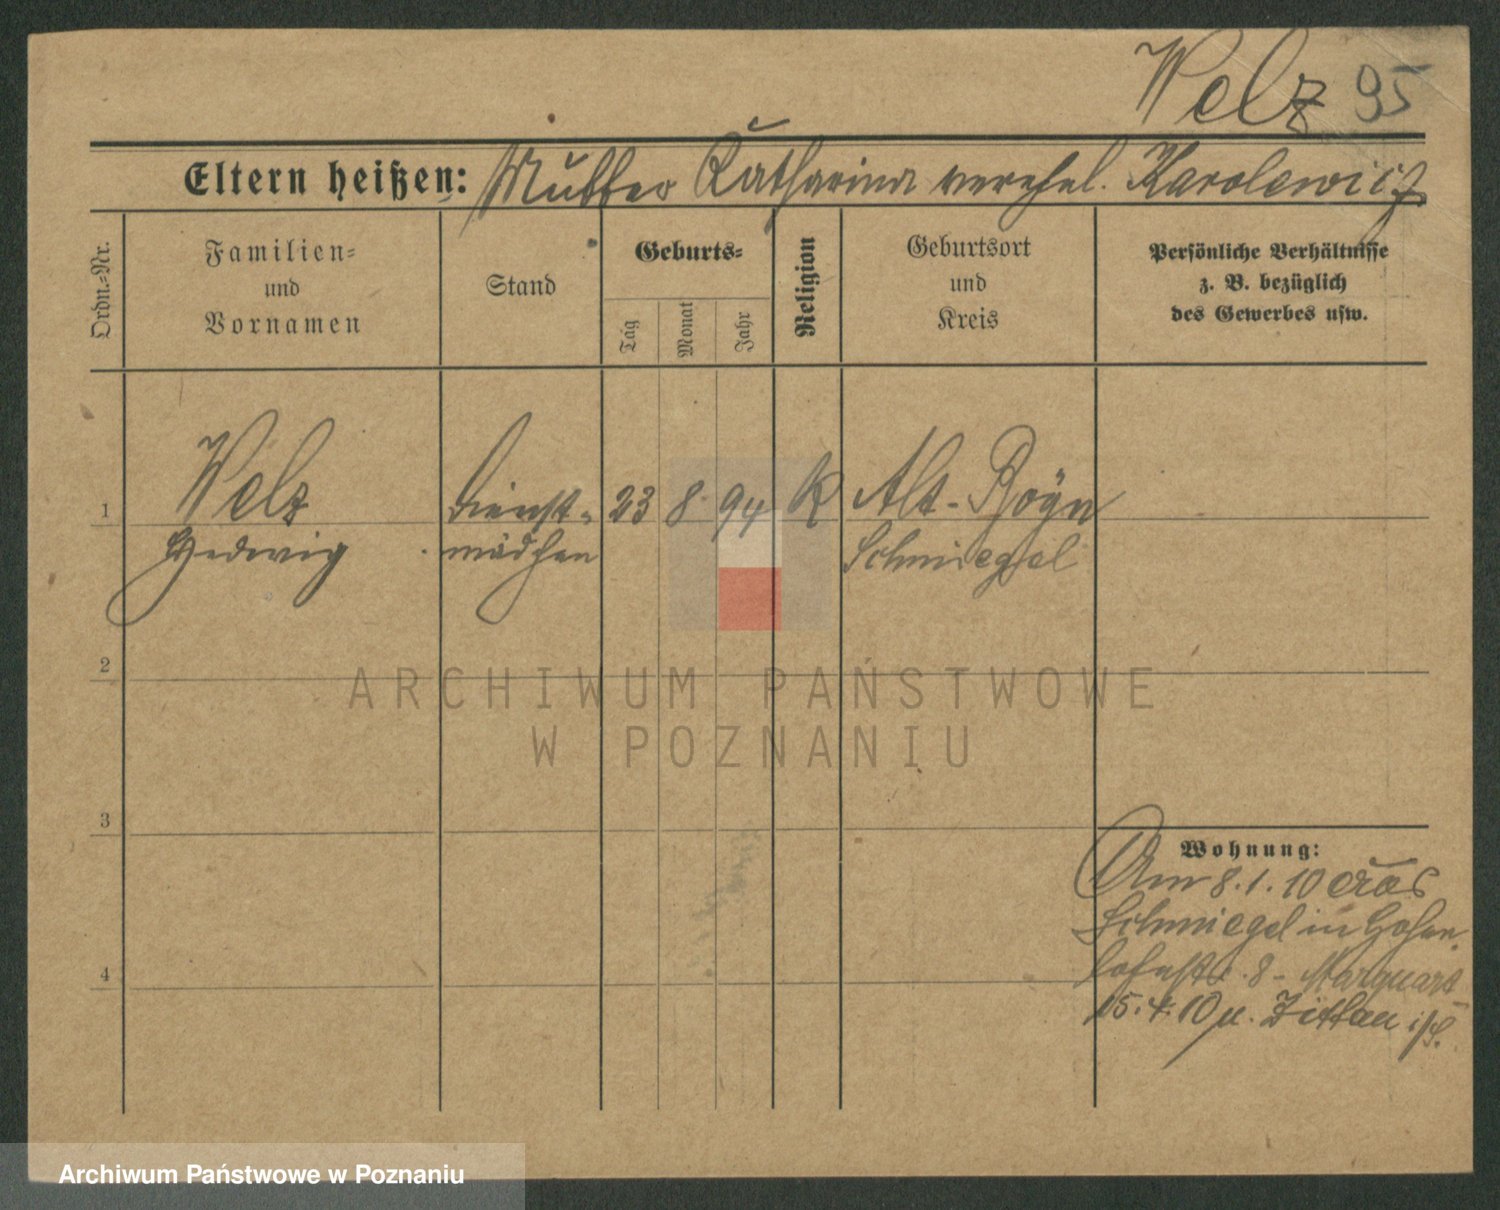 Welz 95
Eltern heißen: Mutter Katharina verehel. Karolewicz
Ordn.-Nr.
Familien-
und
Vornamen
Stand
Geburts-
Tag
Monat
Jahr
Religion
Geburtsort
und
Kreis
Persönliche Verhältnisse
z. B. bezüglich
des Gewerbes usw.
1 Welz Dienst- 23 8 94 K Alt-Boyn
Hedwig mädchen Schmiegel
2
3
4
Wohnung:
Am 8.1.10 aus
Schmiegel in Hohen
lohestr. 8 - Marquart
15.4.10 n. Zittau i/S.
ARCHIWUM PAŃSTWOWE
W POZNANIU
Archiwum Państwowe w Poznaniu